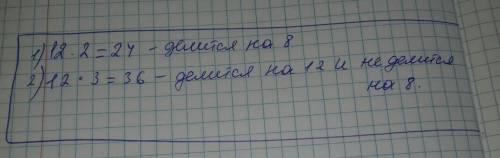 1) 12 · 2 = 24 - делится на 8
2) 12 · 3 = 36 - делится на 12 и не делится
на 8.